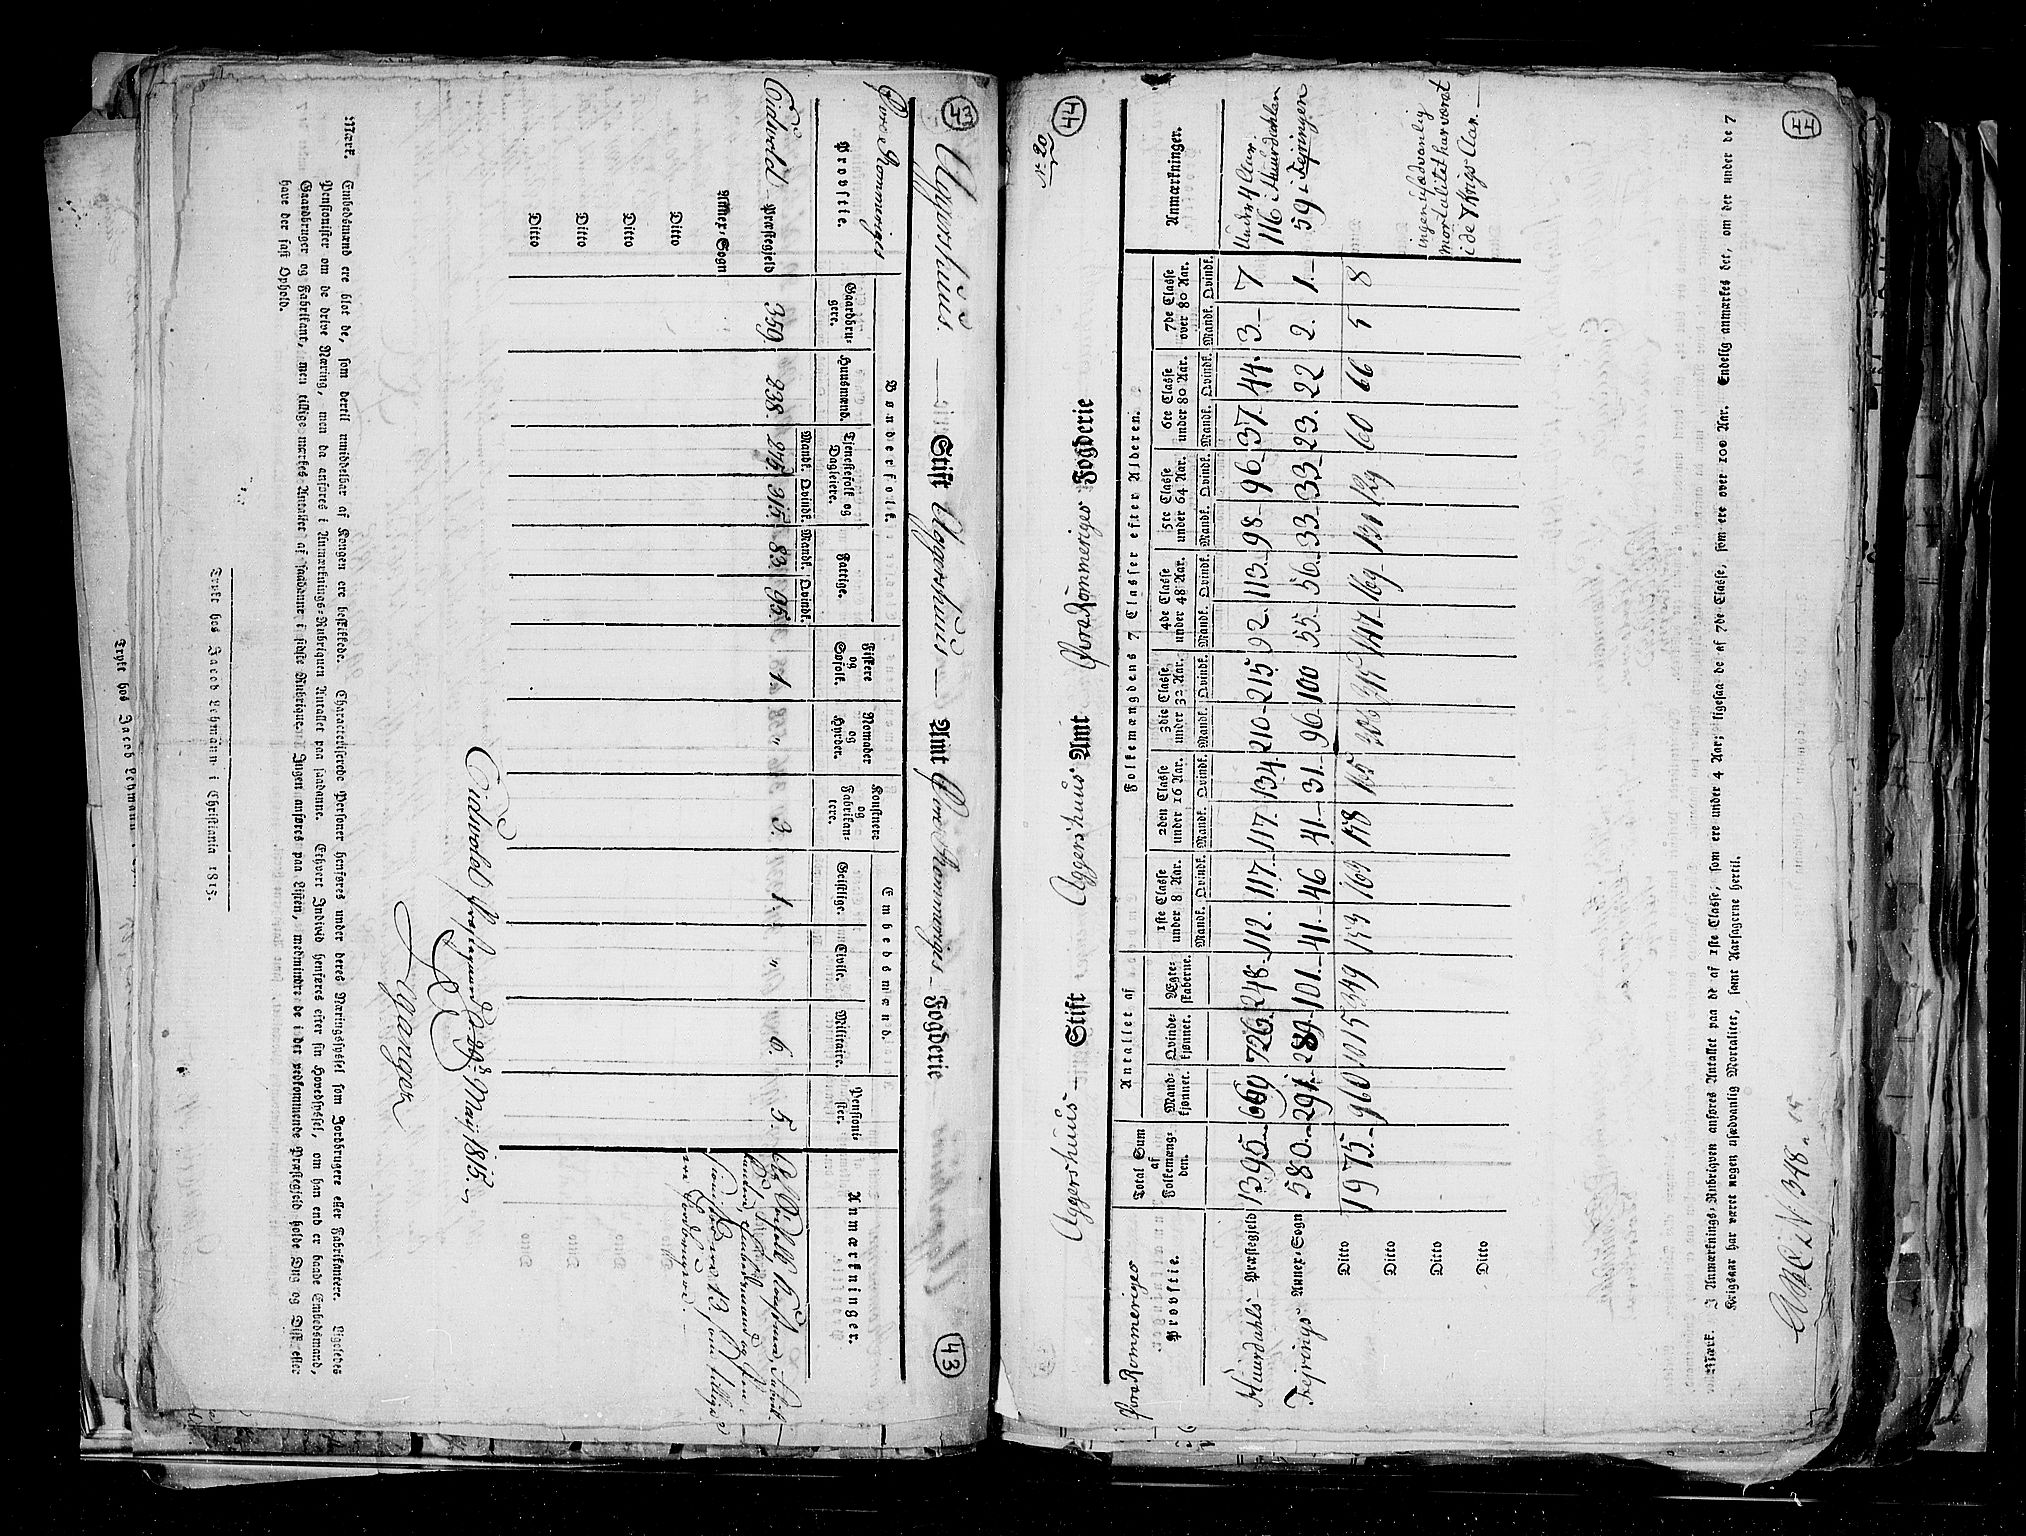 43
Aggershuus. — Stift Aggershuus — Amt Øvre Rommeriges — Fogderie
43
Øvre Rommeriges
Provstie.
Bønderfolk.
Embedsmænd.
Gaardbrugere.
Huusmænd.
Tjenestefolk og Dagleiere.
Mandk. Qvindk.
Fattige.
Mandk. Qvindk.
Fiskere og Søfolk.
Nomader og Hyrder.
Konstnere og Fabrikantere.
Geistlige.
Civile.
Militaire.
Pensionister.
Anmærkninger.
Eidsvold Præstegjeld 359 238 275 315 83 95 1. " 3. 1. " 6. 5.
Annex-Sogn
Ditto
Ditto
Ditto
Ditto
Eidsvold Præstegaard d. 29de Maij 1815.
Mærk. Embedsmænd ere blot de, som dertil umiddelbar af Kongen ere beskikkede. Characteriserede Personer henføres under deres Næringssyssel som Jordbrugere eller Fabrikantere. Ligeledes
Pensionister om de drive Næring, men da anføres i Anmærknings-Rubriquen Antallet paa saadanne. Ethvert Individ henføres efter sin Hovedsyssel, om han end er baade Embedsmand,
Gaardbruger og Fabrikant, men tillige mærkes Antallet af saadanne i sidste Rubrique. Ingen anføres paa Listen, medmindre de i det vedkommende Præstegjeld holde Dug og Disk eller
have der fast Ophold.
Trykt hos Jacob Lehmann i Christiania 1815.
Trykt hos Jacob Lehmann
44
44
No 20
Aggershuus — Stift Aggershuus Amt Øvra Rommeriges Fogderie
Øvra Rommeriges
Provstie.
Total Sum af Folkemængden.
Antallet af
Mandkjønnet.
Qvindekjønnet.
Ægteskaberne.
Folkemængdens 7 Classer efter Alderen.
1ste Classe under 8 Aar.
Mandk. Qvindk.
2den Classe under 16 Aar.
Mandk. Qvindk.
3die Classe under 32 Aar.
Mandk. Qvindk.
4de Classe under 48 Aar.
Mandk. Qvindk.
5te Classe under 64 Aar.
Mandk. Qvindk.
6te Classe under 80 Aar.
Mandk. Qvindk.
7de Classe over 80 Aar.
Mandk. Qvindk.
Anmærkninger.
Huurdahls Præstegjeld 1395 669 726 248 112 117 117 134 210 215 92 113 98 96 37 44 3 7
Under 4 Aar
116 i Huurdahlen
Fejrings Annex-Sogn 580 291 289 101 41 46 41 31 96 100 55 56 33 33 23 22 2 1
59 i Fejringen
Ditto 1975 960 1015 349 153 163 158 165 306 315 147 169 131 129 60 66 5 8
Ditto
Ditto
Ditto
ingen usædvanlig
mortalitet har været
i de 7 Krigs Aar.
Mærk. I Anmærknings-Rubriqven anføres Antallet paa de af 1ste Classe, som ere under 4 Aar; ligesaa de af 7de Classe, som ere over 100 Aar. Endelig anmærkes det, om der under de 7
Krigsaar har været nogen usædvanlig Mortalitet, samt Aarsagerne hertil.